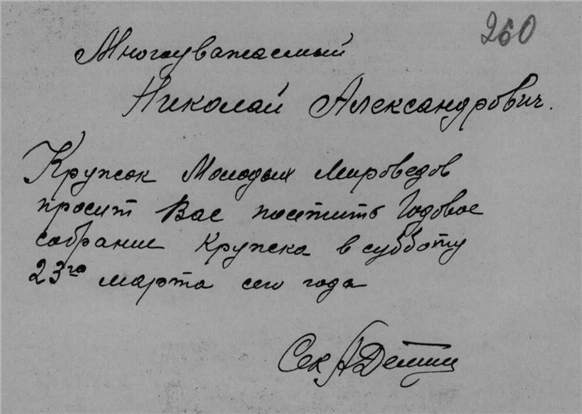 260
Многоуважаемый
Николай Александрович.
Кружок Молодых Мироведов
просит Вас посетить Годовое
собрание Кружка в субботу
23го марта сего года
Сек А